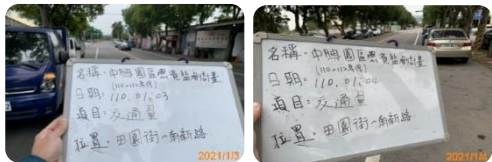 名稱：中興園區景資監測計畫
(110-112年度)
日期：110.01.03
項目：交通量
位置：田園街-南新路
2021/1/3
名稱：中興園區景資監測計畫
(110-112年度)
日期：110.01.04
項目：交通量
位置：田園街-南新路
2021/1/4